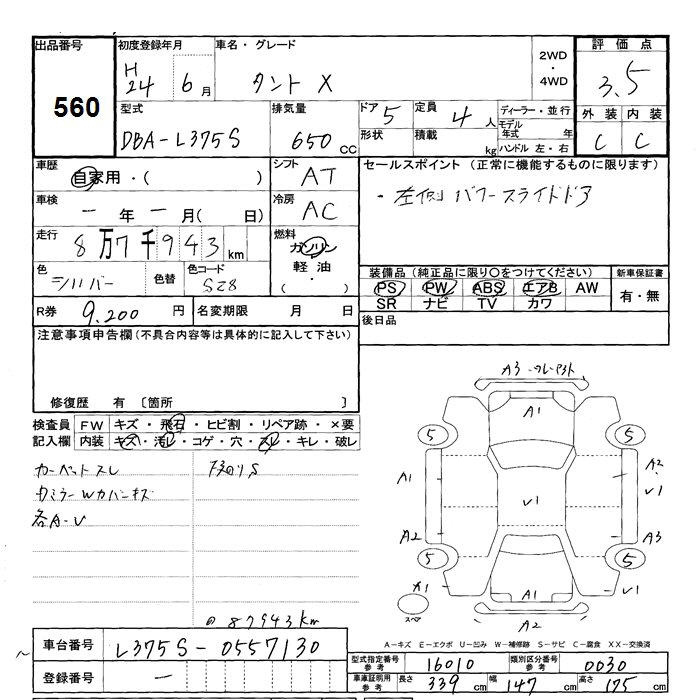 出品番号 初度登録年月 車名・グレード 2WD・4WD 評価点
560 H24 6月 タント X 3.5
型式 排気量 ドア 5 定員 4人 ディーラー・並行 外装 内装
DBA-L375S 650cc 形状 積載 kg モデル年式 年 C C
ハンドル 左・右
車歴 自家用・( ) シフト AT セールスポイント (正常に機能するものに限ります)
車検 ー年ー月(日) 冷房 AC ・左側パワースライドドア
走行 8万7千943km 燃料 ガソリン
軽油・( )
色 シルバー 色替 色コード S28 装備品 (純正品に限り○をつけてください) 新車保証書
PS PW ABS エアB AW 有・無
SR ナビ TV カワ
R券 9,200円 名変期限 月 日 後日品
注意事項申告欄 (不具合内容等は具体的に記入して下さい)
修復歴 有 〔箇所 〕
検査員記入欄 FW キズ・飛石・ヒビ割・リペア跡・×要
内装 キズ・汚レ・コゲ・穴・スレ・キレ・破レ
カーペットスレ
各A-U
87943km
A3
A1
5 5
A1 A2
V1 V1
A2 A3
5 5
A1 V1
スペア A1
A2
A-キズ E-エクボ U-凹み W-補修跡 S-サビ C-腐食 XX-交換済
車台番号 L375S-0557130
登録番号 ー
型式指定番号 参考 16010 類別区分番号 参考 0030
車庫証明用 参考 長さ 339cm 幅 147cm 高さ 175cm